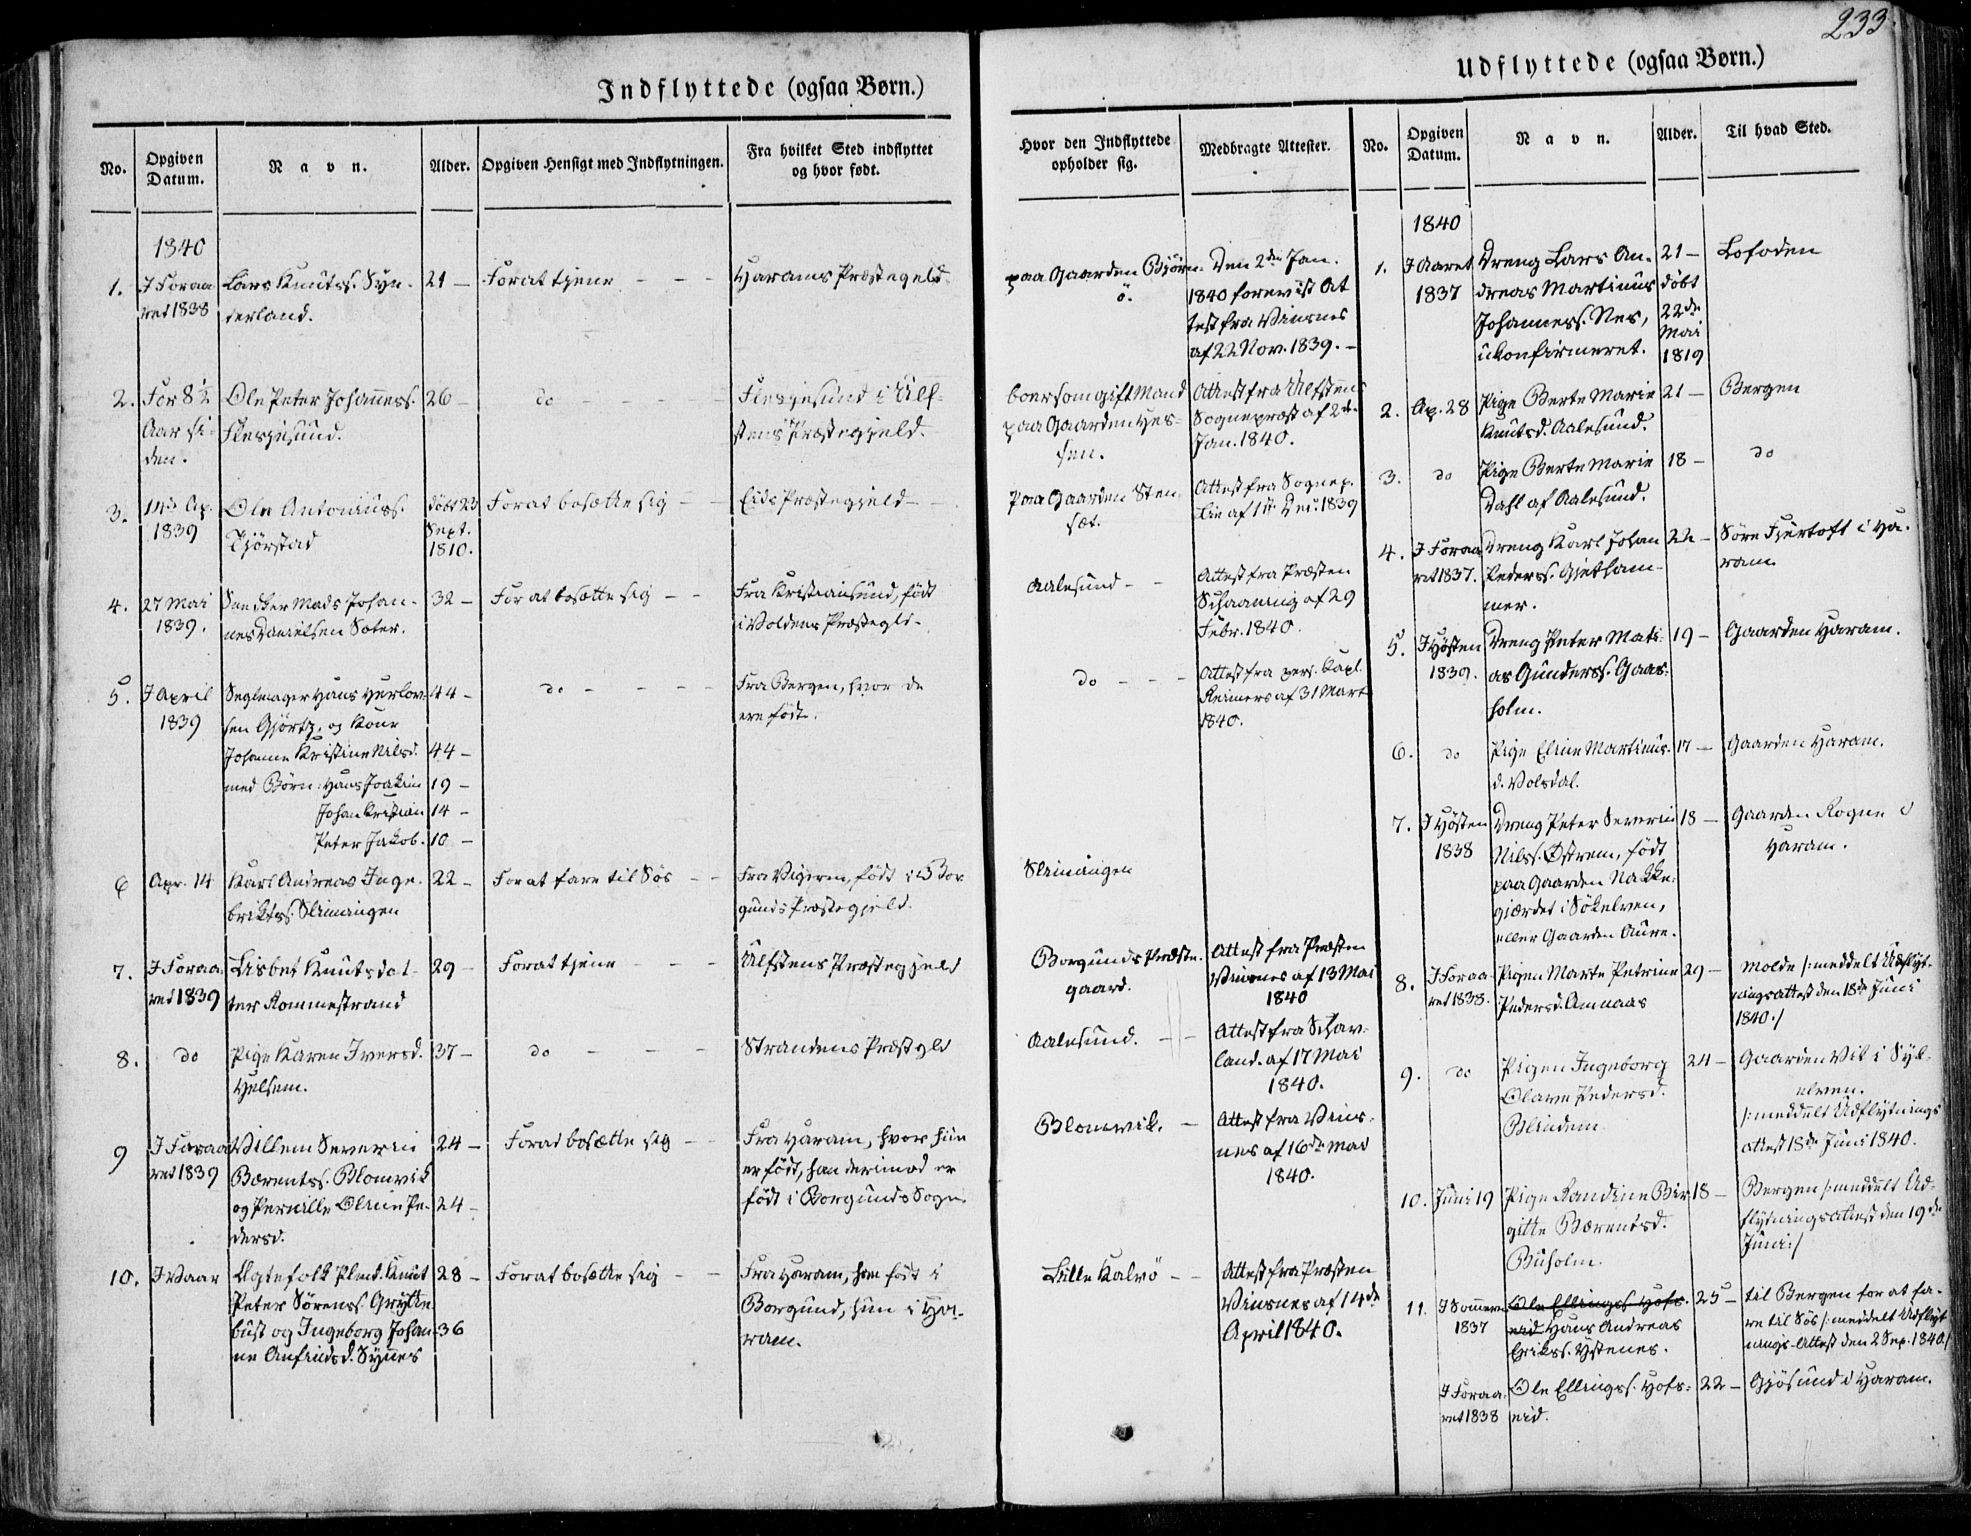 233
Indflyttede (ogsaa Børn.)
No.
Opgiven Datum.
Navn.
Alder.
Opgiven Hensigt med Indflytningen.
Fra hvilket Sted indflyttet og hvor født.
Hvor den Indflyttede opholder sig.
Medbragte Attester.
1840
1. I Foraaret 1838
Lars Knutss. Synnerland.
21 –
For at tjene – – –
Harams Præstegjeld
paa Gaarden Bjørnö.
Den 2den Jan.
1840 forevist Attest fra Vinsnes
af 22 Nov. 1839. –
2. For 8½ Aar siden.
Ole Peter Johanness. Flesjesund.
26 –
do – – –
Flesjesund i Ulfstens Præstegjeld.
boer som gift Mand
paa Gaarden Hessen.
Attest fra Ulfstens
Sognepræst af 2den
Jan. 1840.
3. 14de Ap. 1839
Ole Antoniuss. Tjörstad
döbt 23 Sept. 1810.
For at bosætte sig – –
Eids Præstegjeld –
Paa Gaarden Stensæt.
Attest fra Sognep.
af 1ste Dec. 1839
4. 27 Mai 1839.
Mads Johannes Danielsen Soter.
32 –
For at bosætte sig – –
Fra Kristiansund, født
i Voldens Præstegld.
Aalesund – –
Attest fra Præsten
Schaaning af 29
Febr. 1840.
5. I April 1839
Seglmager Hans Herlovsen Gjørtz, og Kone
44 –
Johanne Kristine Nilsd.
44 –
med Børn: Hans Joakim
19 –
Johan Kristian
14 –
Peter Jakob.
10 –
do – – – –
Fra Bergen, hvor de
ere født.
do – – –
Attest fra pers. Kapl.
Reimers af 31 Marts
1840.
6 Apr. 14
Karl Andreas Ingebriktss. Slinningen
22 –
For at fare til Søs – –
Fra Vigeren, født i Borgunds Præstegjeld.
Slinningen
7. I Foraaret 1839
Lisbet Knutsdotter Rommestrand
29 –
For at tjene – – –
Ulfstens Præstegjeld
Borgunds Præstegaard.
Attest fra Præsten
Vinsnes af 13 Mai
1840
8. do
Pige Karen Iversd. Helsem.
37 –
do – – –
Strandens Præstgld
Aalesund. – –
Attest fra Schavland. af 17 Mai
1840.
9 I Foraaret 1839
Villem Severin
24 –
Bærentss. Blomvik
og Pernille Oline Pedersd.
24 –
For at bosætte sig – –
Fra Haram, hvor hun
er født, han derimod er
født i Borgunds Sogn.
Blomvik. –
Attest fra Vinsnes af 16de Mai
1840.
10. I Vaar
Ægtefolk Knut
28 –
Peter Sörenss. Gryttebust og Ingeborg Johanne Anfindsd. Synnes
36
For at bosætte sig – –
Fra Haram, han født i
Borgund, hun i Haram.
Lille Kalvö – –
Attest fra Præsten
Vinsnes af 14de
April 1840.
Udflyttede (ogsaa Børn.)
No.
Opgiven Datum.
Navn.
Alder.
Til hvad Sted.
1840
1. I Aaret 1837
Dreng Lars Andreas Martinus
Johanness. Nes,
ukonfirmeret.
21 –
döbt
22de
Mai
1819
Lofoden
2. Ap. 28
Pige Berte Marie
Knutsd. Aalesund.
21 –
Bergen
3. do
Pige Berte Marie
Dahl af Aalesund.
18 –
do
4. I Foraaret 1837.
Dreng Karl Johan
Pederss. Gjethammer.
22 –
Søre Fjertoft i Haram
5. I Høsten 1839.
Dreng Peter Matias Gunderss. Gaasholm.
19 –
Gaarden Haram.
6. do
Pige Eline Martinusd. Volsdal.
17 –
Gaarden Haram.
7. I Høsten 1838
Dreng Peter Severin
Nilss. Østrem, født
paa Gaarden Nakkegjærdet i Søkelven,
eller Gaarden Aure.
18 –
Gaarden Rogne i
Haram.
8. I Foraaret 1838.
Pigen Marte Petrine
Pedersd. Amnaas
29 –
Molde /: meddelt Udflytningsattest den 18de Juni
1840./
9. do
Pigen Ingeborg
Olave Pedersd.
Blindem
24 –
Gaarden Vik i Sykelven.
/: meddelt Udflytnings
attest 18de Juni 1840.
10. Juni 19
Pige Randine Birgitte Bærentsd.
Buholm.
18 –
Bergen /: meddelt Udflytningsattest den 19de
Juni:/
11. I Sommeren 1837
Ole Ellingss. Hofseid Hans Andreas
Erikss. Ystenes.
25 –
til Bergen for at fare til Søs /: meddelt Udflytnings-Attest den 2 Sep. 1840./
I Foraaret 1838
Ole Ellingss. Hofseid.
22 –
Gjøsund i Haram.